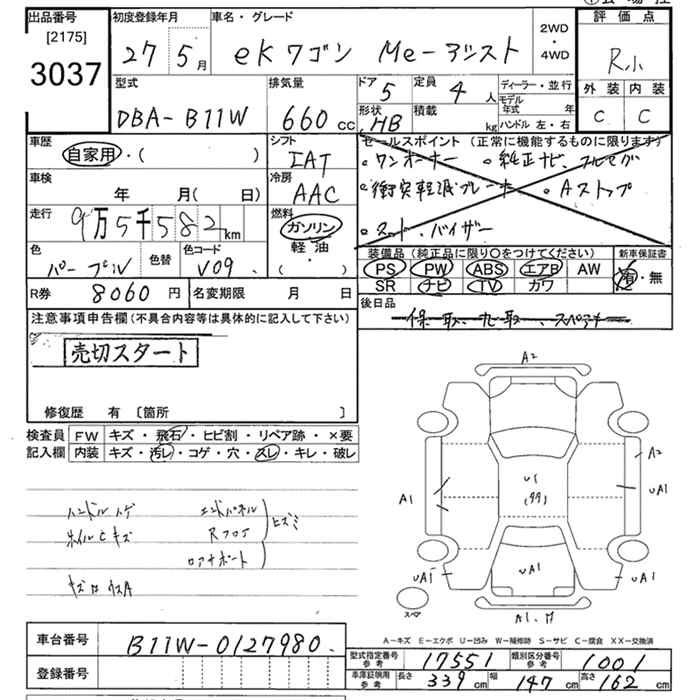 出品番号 初度登録年月 車名・グレード 2WD・4WD 評価点
[2175] 3037 27年5月 eKワゴン Me-アシスト R小
型式 排気量 ドア 定員 ディーラー・並行 外装 内装
DBA-B11W 660cc 5 4人 モデル年式 年 C C
形状 HB 積載 kg ハンドル 左・右
車歴 自家用・( ) シフト IAT セールスポイント (正常に機能するものに限ります)
。ワンオーナー 。純正ナビ、フルセグ
車検 年 月( 日) 冷房 AAC
。衝突軽減ブレーキ 。Aストップ
走行 9万5千582km 燃料 ガソリン
。バイザー
色 パープル 色替 色コード V09 軽油 ・( )
装備品 (純正品に限り○をつけてください) 新車保証書
PS PW ABS エアB AW 有・無
SR ナビ TV カワ
R券 8060円 名変期限 月 日
後日品
保、取、ナビ取、スペアキー
注意事項申告欄 (不具合内容等は具体的に記入して下さい)
売切スタート
修復歴 有 〔箇所 〕
検査員 FW キズ・飛石・ヒビ割・リペア跡・×要
記入欄 内装 キズ・汚レ・コゲ・穴・スレ・キレ・破レ
ハンドルハゲ エンドパネル
ホイルCキズ Rフロア ヒズミ
ロアサポート
A2
A2
U1
A1 UA1
UA1 UA1 UA1
スペア
A1.
A-キズ E-エクボ U-凹み W-補修跡 S-サビ C-腐食 XX-交換済
車台番号 B11W-0127980.
型式指定番号 参考 17551 類別区分番号 参考 1001
登録番号
車庫証明用 参考 長さ 339cm 幅 147cm 高さ 162cm